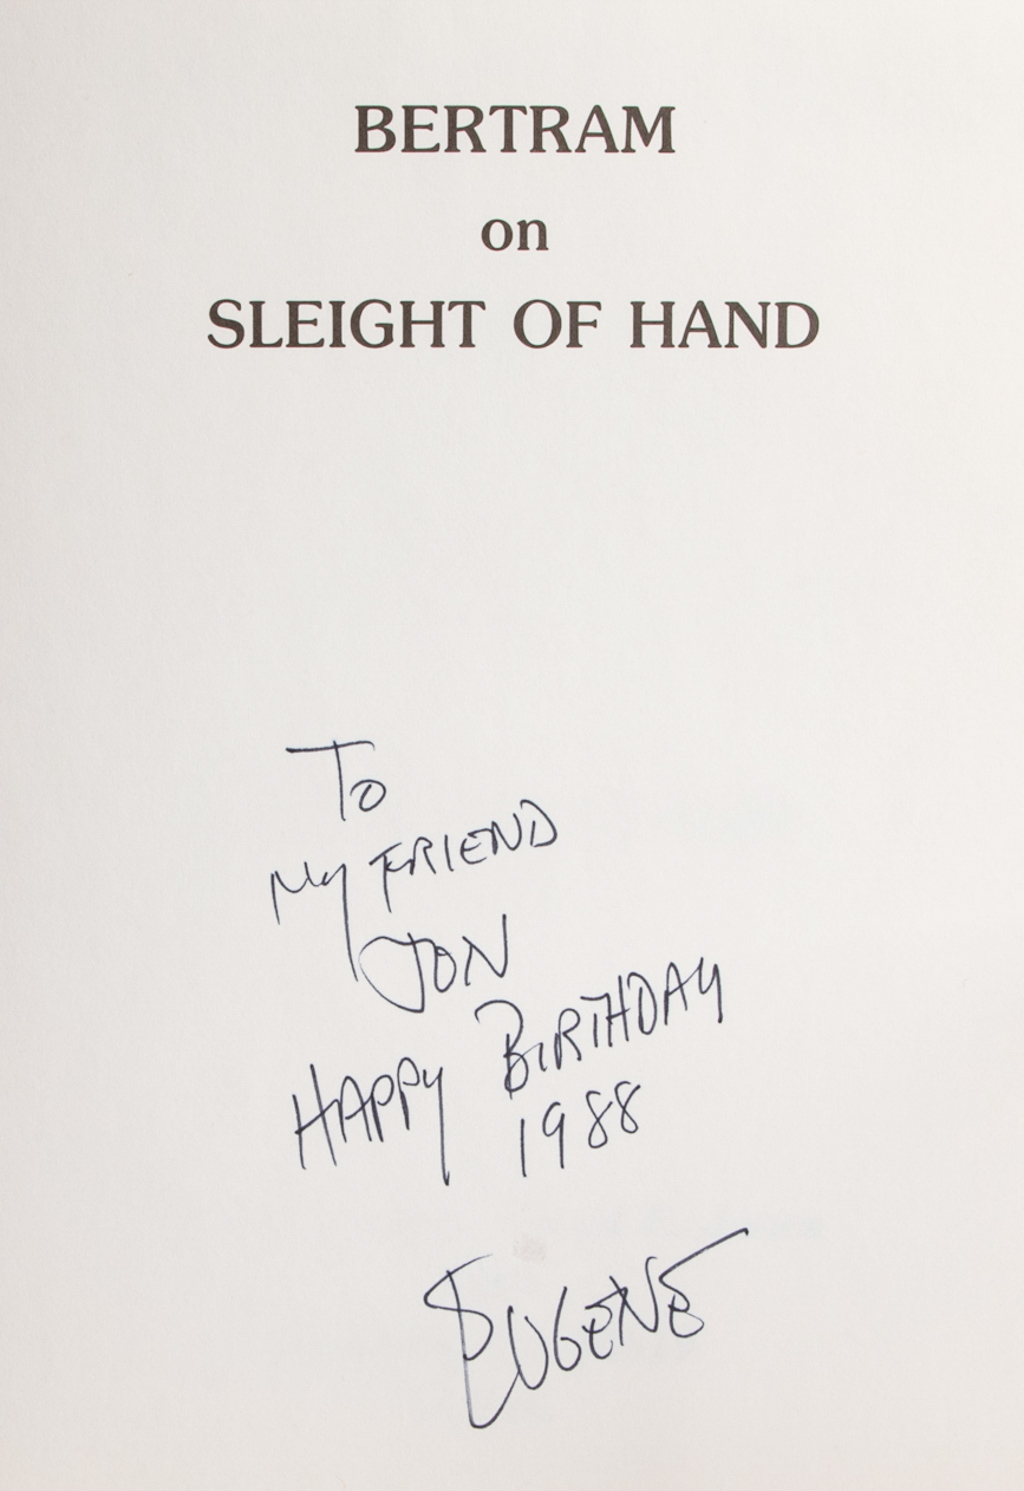 BERTRAM
on
SLEIGHT OF HAND
To
My FRIEND
JON
HAPPY BIRTHDAY
1988
EUGENE